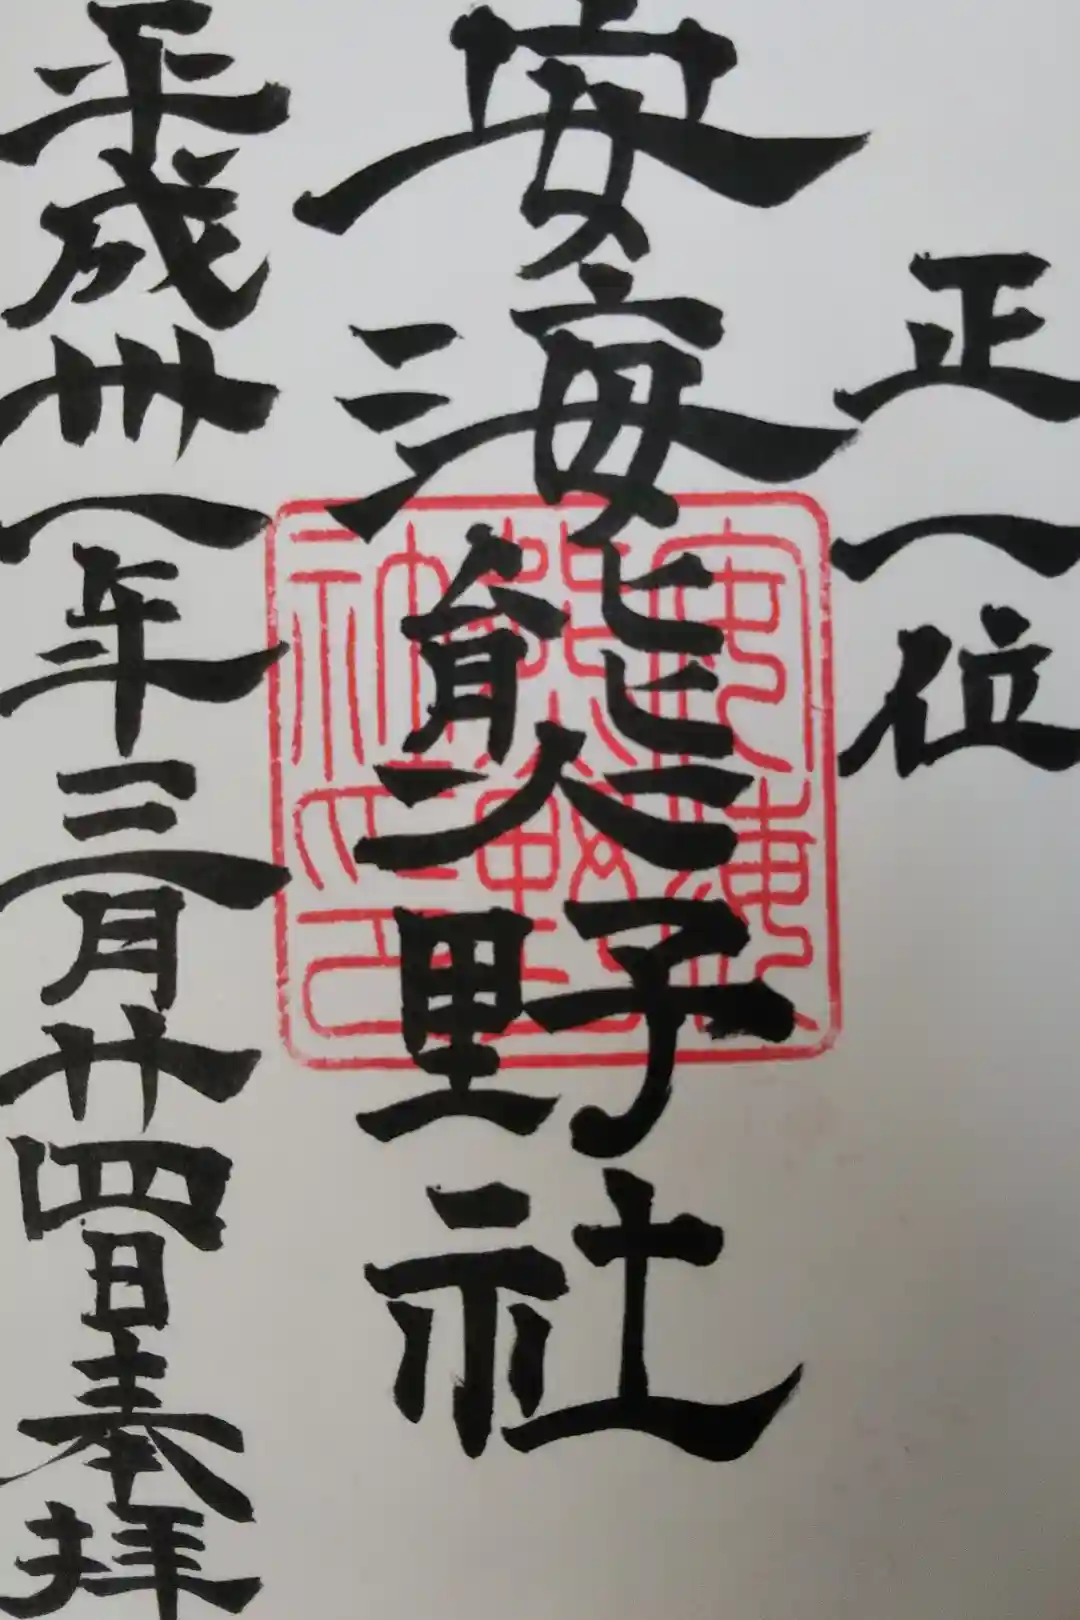 正一位
安海熊野社
安海熊野社之印
平成卅一年三月廿四日奉拝